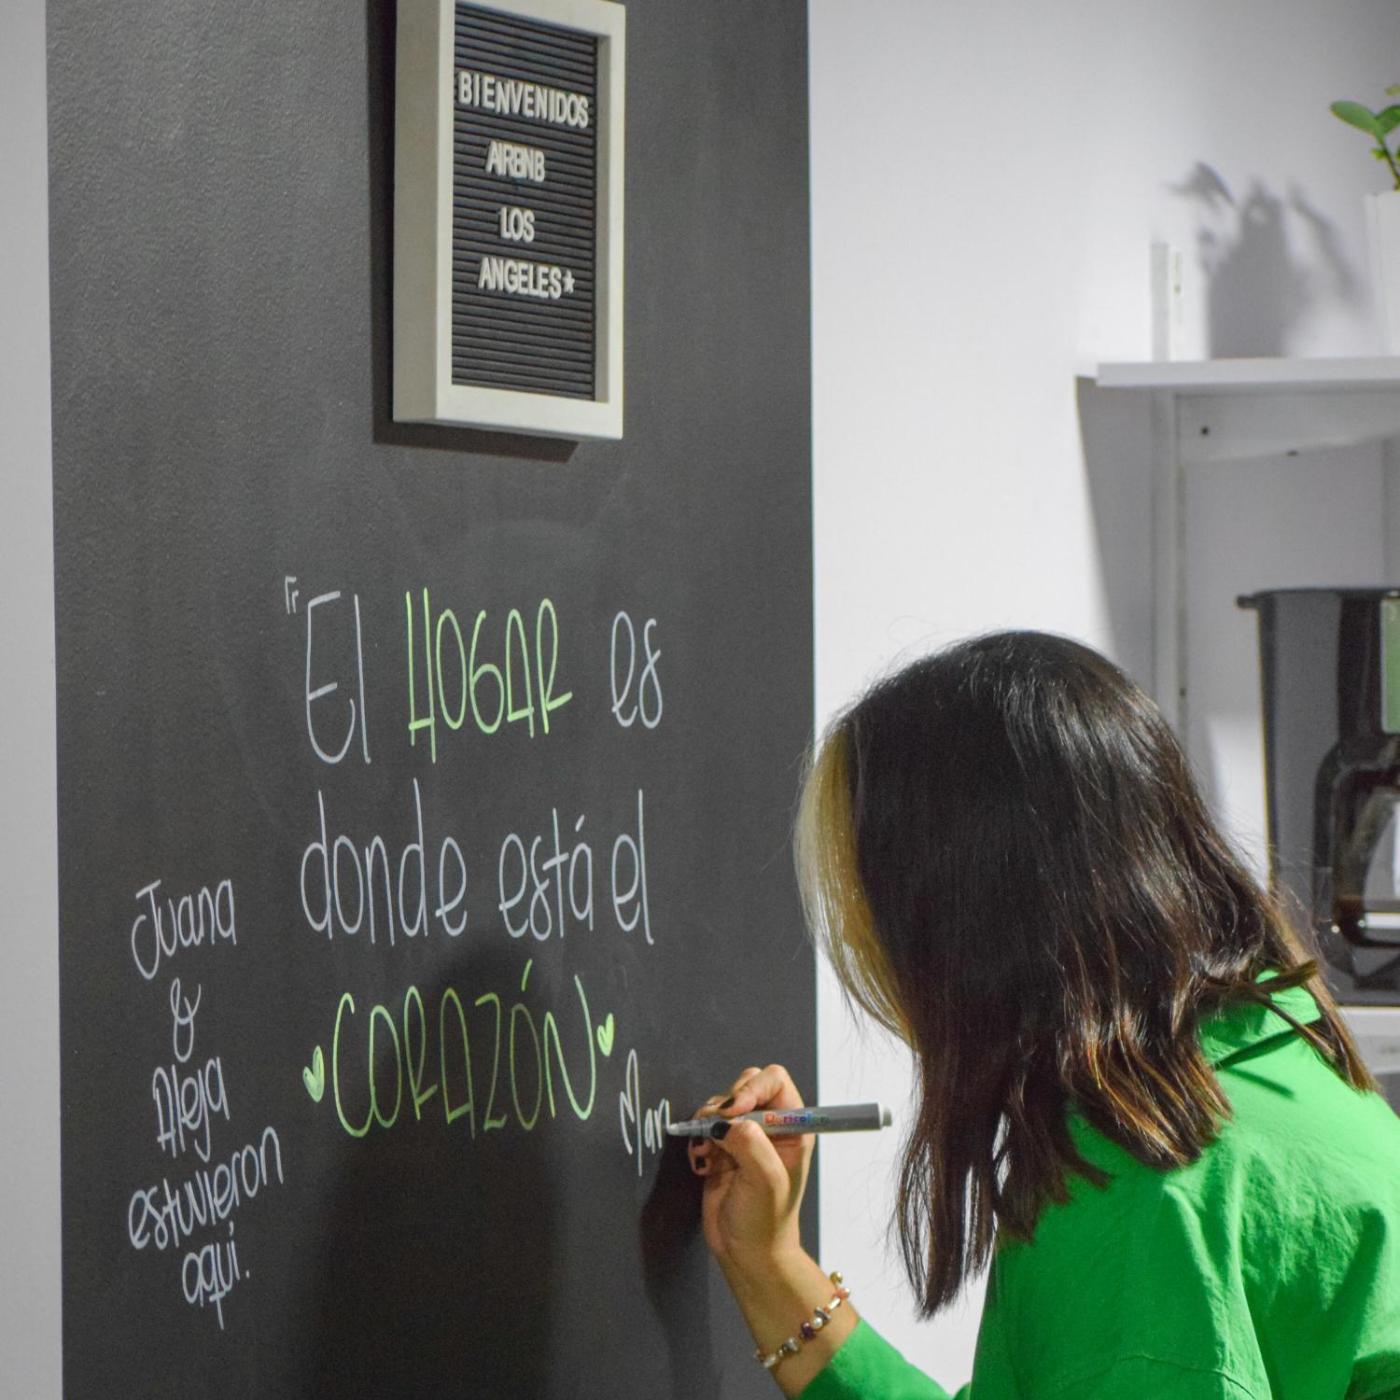 BIENVENIDOS
AIRBNB
LOS
ANGELES★
"El HOGAR es
donde está el
CORAZÓN
Juana
&
Aleja
estuvieron
aquí.
Mar